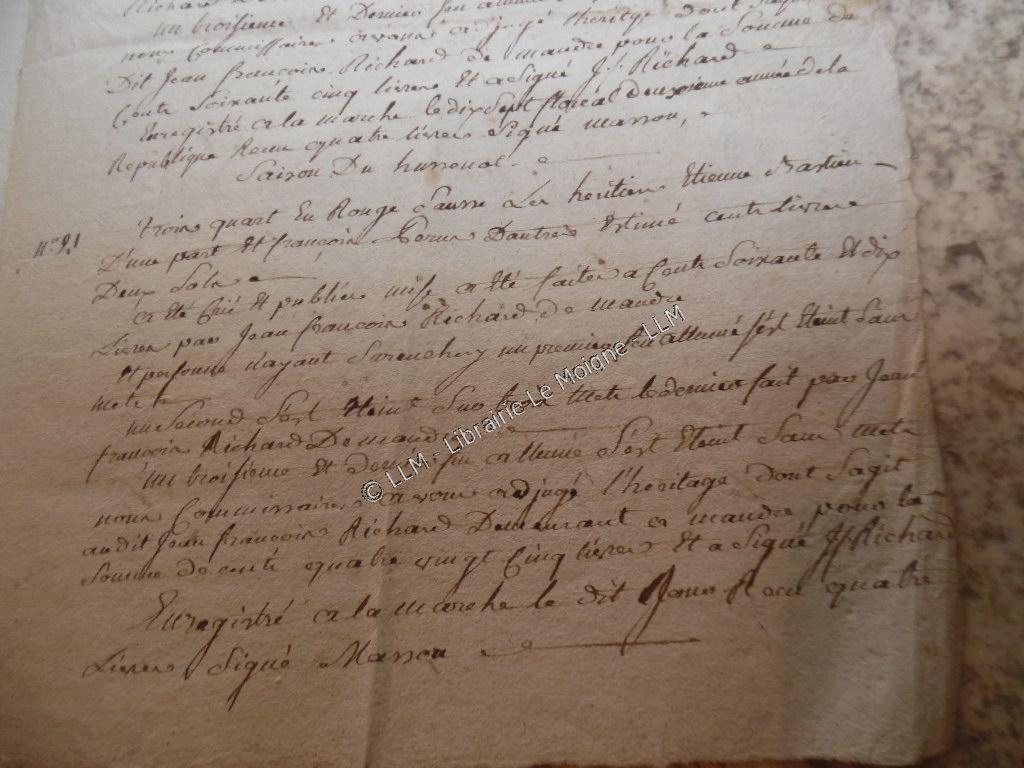 Richard
un troisieme Et Dernier feu allumé
nous Commissaires avons adjugé l'heritage dont Sagit
Dit Jean francois Richard de mandre pour la Somme de
Cents Soixante cinq livres Et a Signé J f Richard
Enregistré a la marche le dix Sept floréal deuxieme année de la
Republique Recu quatre livres Signé Masson,
Saison Du
n° 91
trois quart En Rouge Les heritiers Etienne Bastien
D'une part Et francois D'autres Estimé cents livres
Deux Sols
a été Crié Et publiée mise a été faites a Cents Soixante Et dix
Livres par Jean francois Richard de mandre
Et personne n'ayant un premier feu allumé s'est Eteint Sans
mete
un Second S'est Eteint Sur la mete le dernier fait par Jean
francois Richard De mandre
Un troisieme Et dernier feu allumé S'est Eteint Sans mete
nous Commissaires avons adjugé l'heritage dont Sagit
audit Jean francois Richard Demeurant a mandre pour la
Somme de cents quatre vingt Cinq livres Et a Signé Jf Richard
Enregistré a la marche le dit Jour Recu quatre
Livres Signé Masson
© LLM - Librairie-Le Moigne - LLM